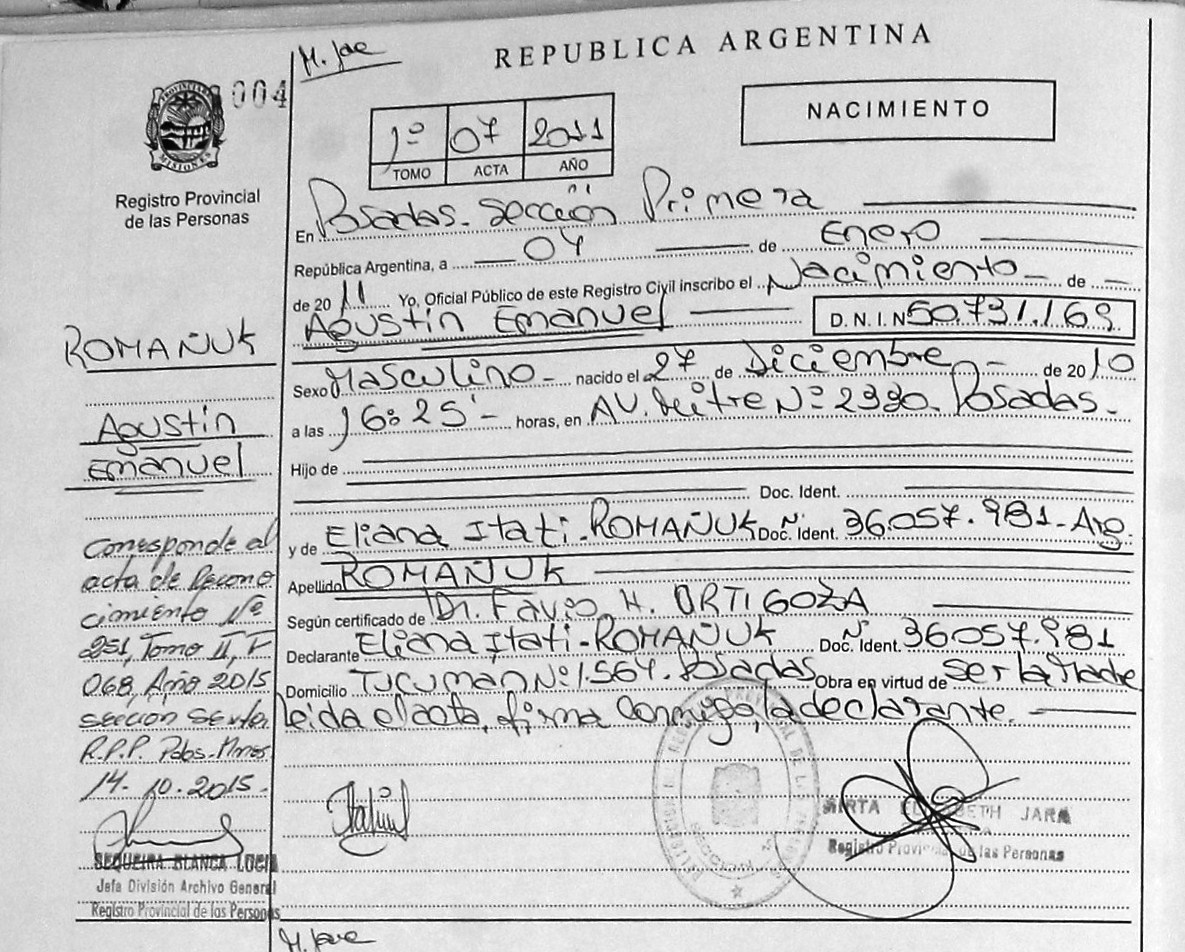 M. Jae
REPUBLICA ARGENTINA
004
NACIMIENTO
PROVINCIA
MISIONES
1º 07 2011
TOMO ACTA AÑO
Registro Provincial
de las Personas
En Posadas. Sección Primera
República Argentina, a 04 de Enero
de 2011 Yo, Oficial Público de este Registro Civil inscribo el Nacimiento de
Agustín Emanuel D. N. I. N 50.731.169
Sexo Masculino nacido el 27 de Diciembre de 2010
a las 16:25 horas, en AV. Mitre Nº 2390. Posadas.
Hijo de
Doc. Ident.
y de Eliana Itati. ROMAÑUK Doc. Ident. Nº 36.057.981 - Arg.
Apellido ROMAÑUK
Según certificado de Dr. Favio H. ORTIGOZA
Declarante Eliana Itati - ROMAÑUK Doc. Ident. Nº 36.057.981
Domicilio Tucumán Nº 1.564. Posadas Obra en virtud de ser la Madre
leida el acta, firma conmigo, la declarante.
ROMAÑUK
Agustín
Emanuel
Corresponde al
acta de Recono
cimiento Nº
251, Tomo II, F
068, Año 2015
sección sexta.
R.P.P. Pdas-Mnes.
14.10.2015.
SEQUEIRA BLANCA LUCIA
Jefa División Archivo General
Registro Provincial de las Personas
MIRTA ELIZABETH JARA
Registro Provincial de las Personas
M. Jae